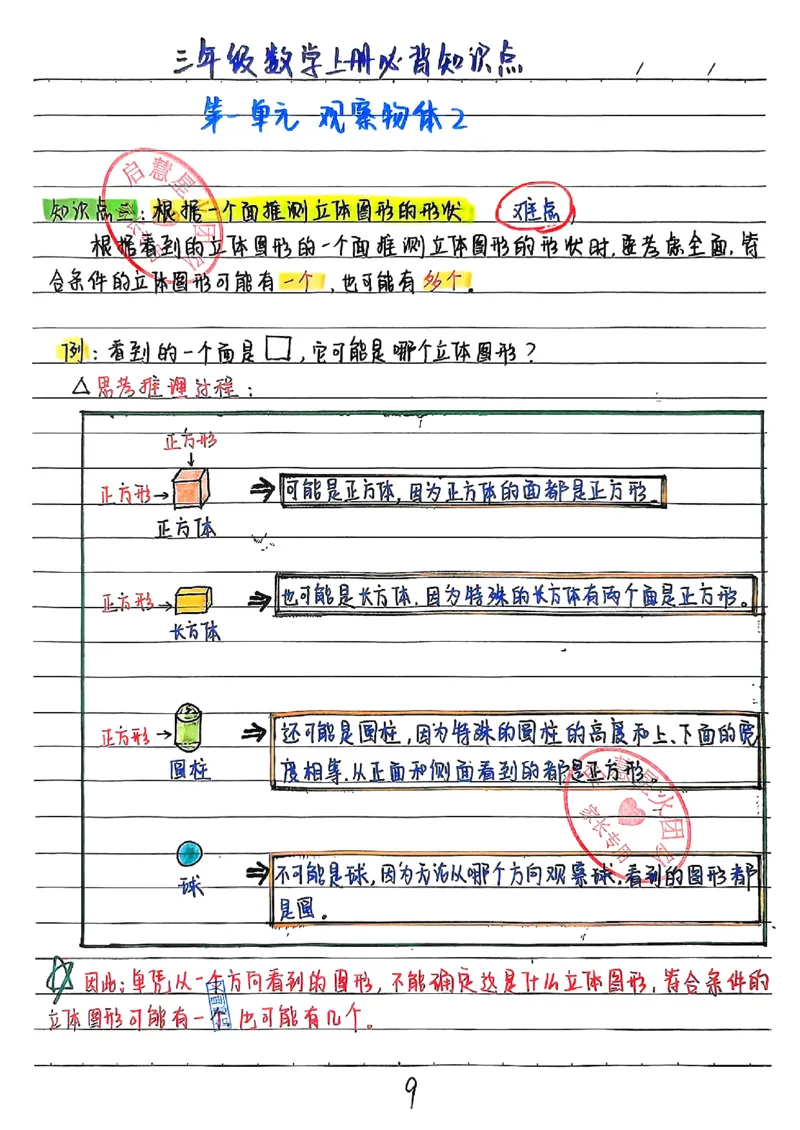 三年级数学上册必背知识点
第一单元 观察物体2
知识点三：根据一个面推测立体图形的形状 难点
根据看到的立体图形的一个面推测立体图形的形状时，要考虑全面，符
合条件的立体图形可能有一个，也可能有多个。
例：看到的一个面是□，它可能是哪个立体图形？
△思考推理过程：
正方形
正方形→ 可能是正方体，因为正方体的面都是正方形。
正方体
正方形→ 也可能是长方体，因为特殊的长方体有两个面是正方形。
长方体
正方形→ 还可能是圆柱，因为特殊的圆柱的高度和上、下面的宽
圆柱 度相等，从正面和侧面看到的都是正方形。
不可能是球，因为无论从哪个方向观察球，看到的图形都
球 是圆。
因此：单凭从一个方向看到的图形，不能确定这是什么立体图形，符合条件的
立体图形可能有一个 也可能有几个。
启慧星火团队
家长专用
9